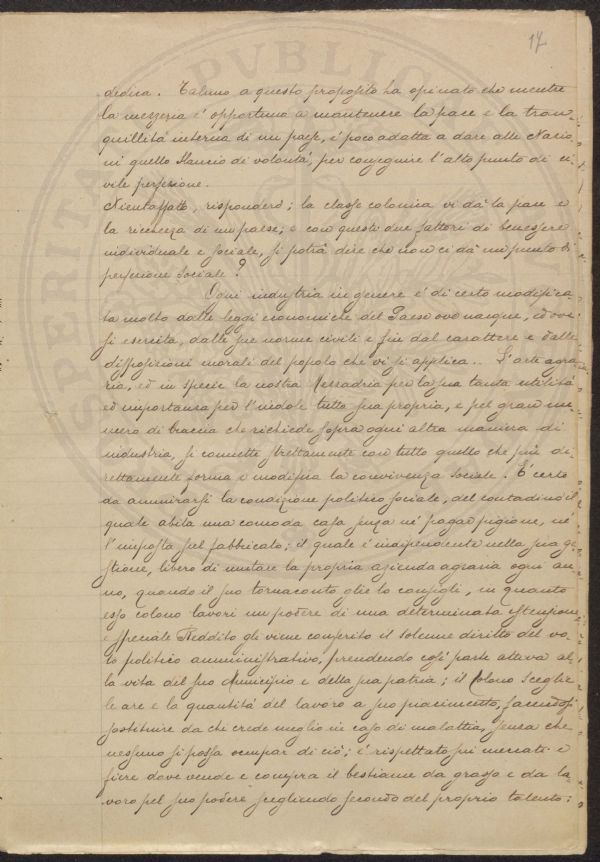 17
dedica. Taluno a questo proposito ha opinato che mentre
la mezzeria è opportuna a mantenere la pace e la tran-
quillità interna di un paese, è poco adatta a dare alle Nazio-
ni quello slancio di volontà, per conseguire l'alto punto di ci-
vile perfezione.
Nientaffatto, risponderò; la classe colonica vi dà la pace e
la ricchezza di un paese; e con questi due fattori di benessere
individuale e sociale, si potrà dire che non ci dà un punto di
perfezione sociale?
Ogni industria in genere è di certo modifica-
ta molto dalle leggi economiche del Paese ove nasque, ed ove
si esercita, dalle sue norme civili e fin dal carattere e dalle
disposizioni morali del popolo che vi si applica.. L'arte agra-
ria, ed in specie la nostra Mezzadria per la sua tanta utilità
ed importanza per l'indole tutta sua propria, e pel gran nu-
mero di braccia che richiede sopra ogni altra maniera di
industria, si connette strettamente con tutto quello che più di-
rettamente forma e modifica la convivenza sociale. È certo
da ammirarsi la condizione politico sociale, del contadino il
quale abita una comoda casa senza nè pagar pigione, nè
l'imposta sul fabbricato; il quale è indipendente nella sua ge-
stione, libero di mutare la propria azienda agraria ogni an-
no, quando il suo tornaconto glielo consigli, in quanto
esso colono lavori un podere di una determinata estensione
e speciale Reddito gli viene conferito il solenne diritto del vo-
to politico amministrativo, prendendo così parte attiva al-
la vita del suo Municipio e della sua patria; il Colono sceglie
le are e la quantità del lavoro a suo piacimento, facendosi
sostituire da chi crede meglio in caso di malattia, senza che
nessuno si possa occupar di ciò; è rispettato sui mercati e
fiere dove vende e compra il bestiame da grasso e da la-
voro pel suo podere scegliendo secondo del proprio talento;
PERITA
PVBLICO